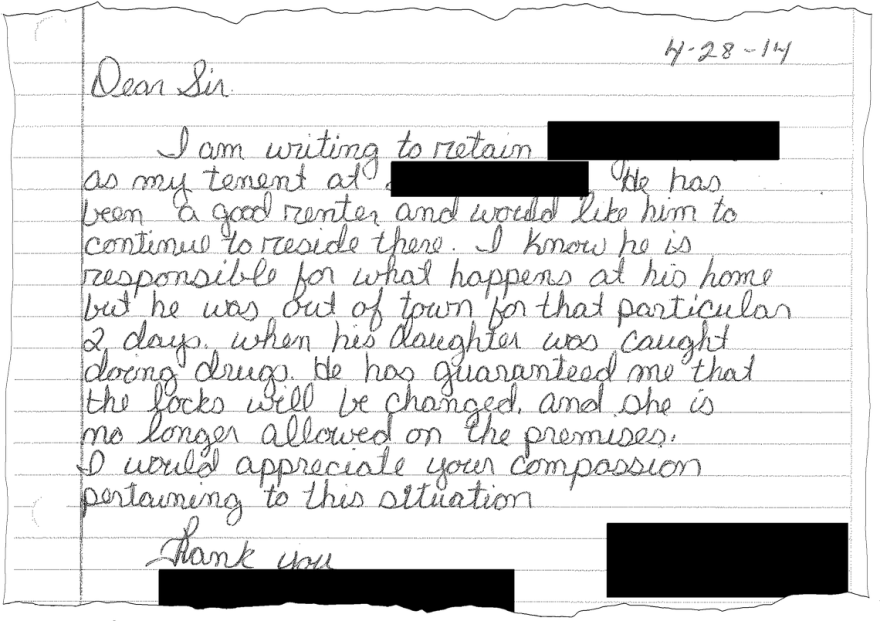 4-28-14
Dear Sir.
I am writing to retain
as my tenent at He has
been a good renter and would like him to
continue to reside there. I know he is
responsible for what happens at his home
but he was out of town for that particular
2 days. when his daughter was caught
doing drugs. He has guaranteed me that
the locks will be changed, and she is
no longer allowed on the premises.
I would appreciate your compassion
pertaining to this situation
Thank you